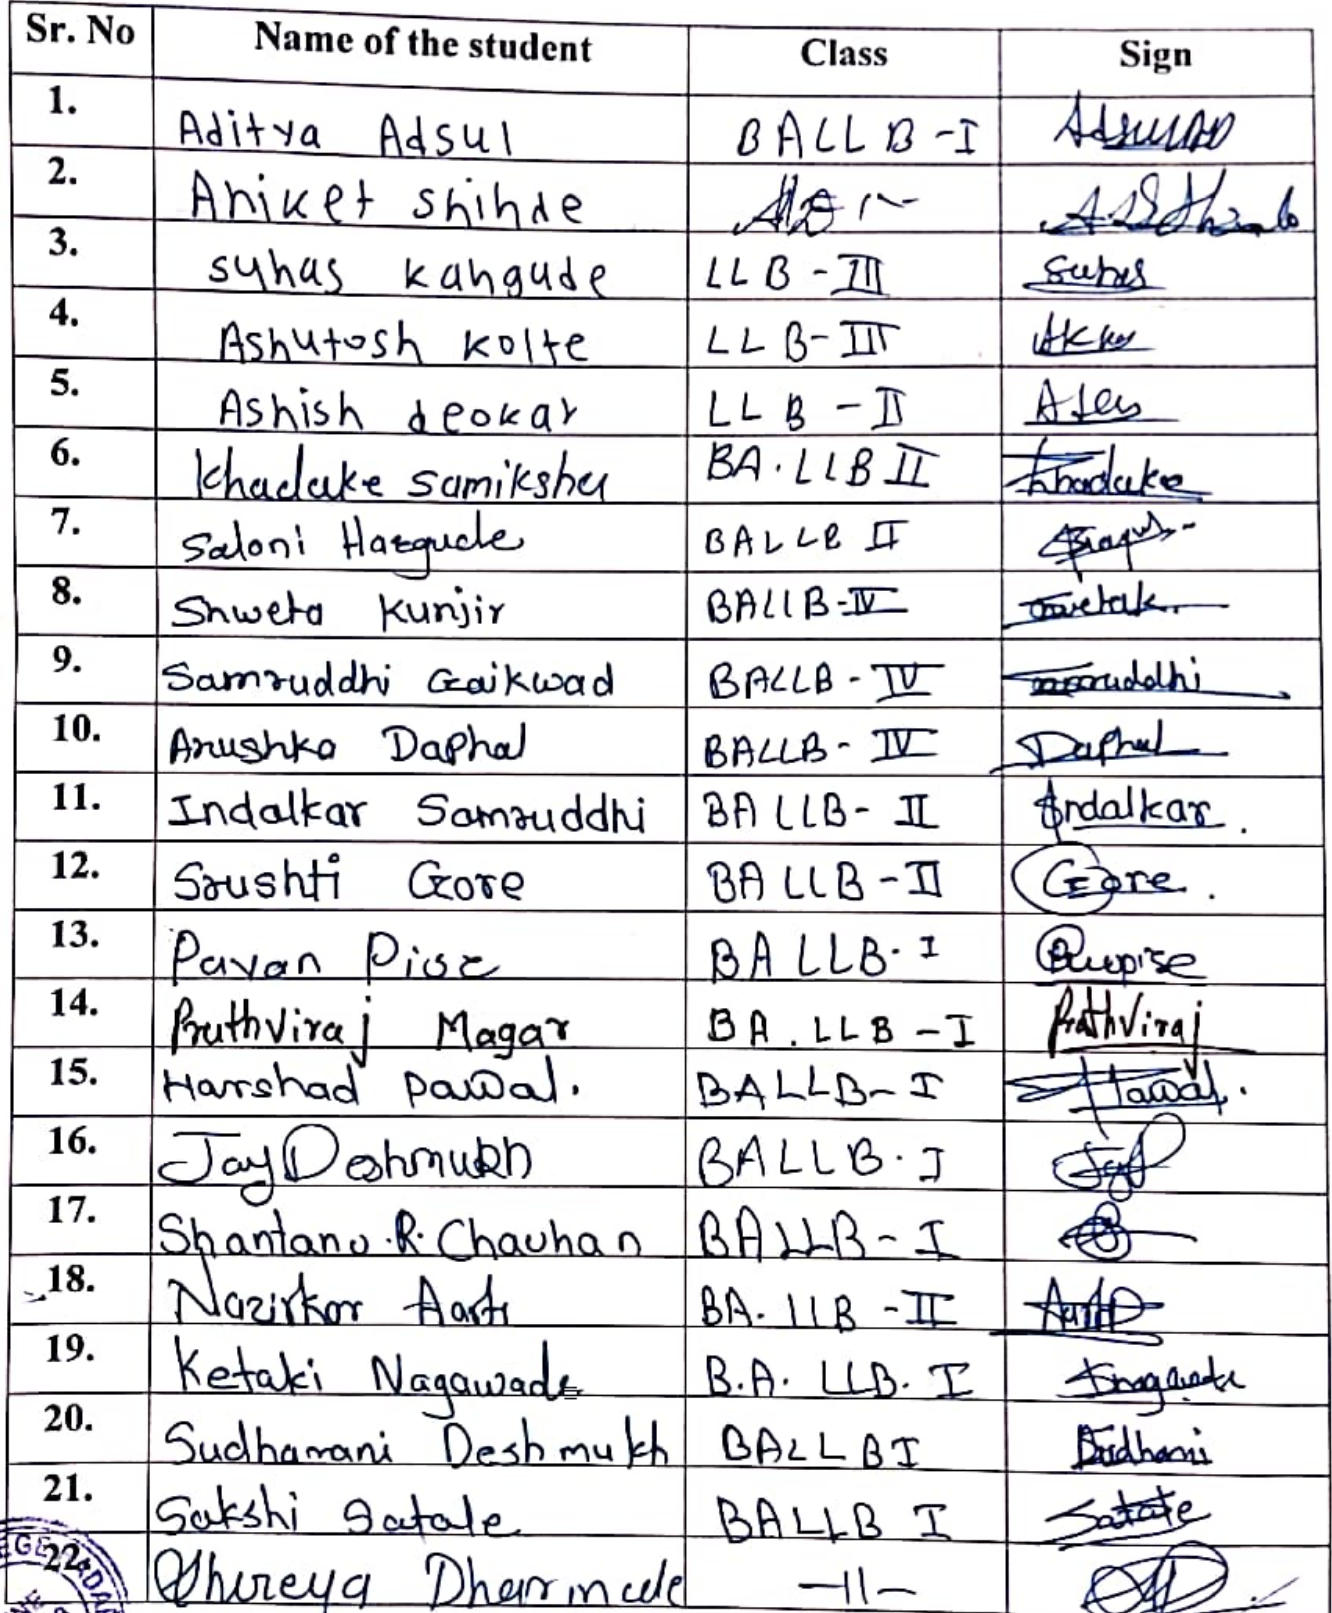 Sr. No Name of the student Class Sign
1. Aditya Adsul BALLB-I
2. Aniket shinde
3. syhas kangude LLB-III Suhas
4. Ashutosh kolte LLB-III
5. Ashish deokar LLB-II
6. Khadake Samiksha BA.LLB II Khadake
7. Saloni Hargude BALLB II
8. Shweta Kunjir BALLB-IV
9. Samruddhi Gaikwad BALLB-IV
10. Anushka Daphal BALLB-IV Daphal
11. Indalkar Samruddhi BALLB-II Indalkar.
12. Srushti Gore BALLB-II Gore.
13. Pavan Pise BALLB-I
14. Pruthviraj Magar BA.LLB-I Pruthviraj
15. Harshad Pawal. BALLB-I
16. Jay Deshmukh BALLB.I
17. Shantanu.R.Chauhan BALLB-I
18. Nazirkar Aarti BA.LLB-II
19. Ketaki Nagawade B.A. LLB. I
20. Sudhamani Deshmukh BALLB I
21. Sakshi Satale BALLB I
22. Shreya Dharmale -11-